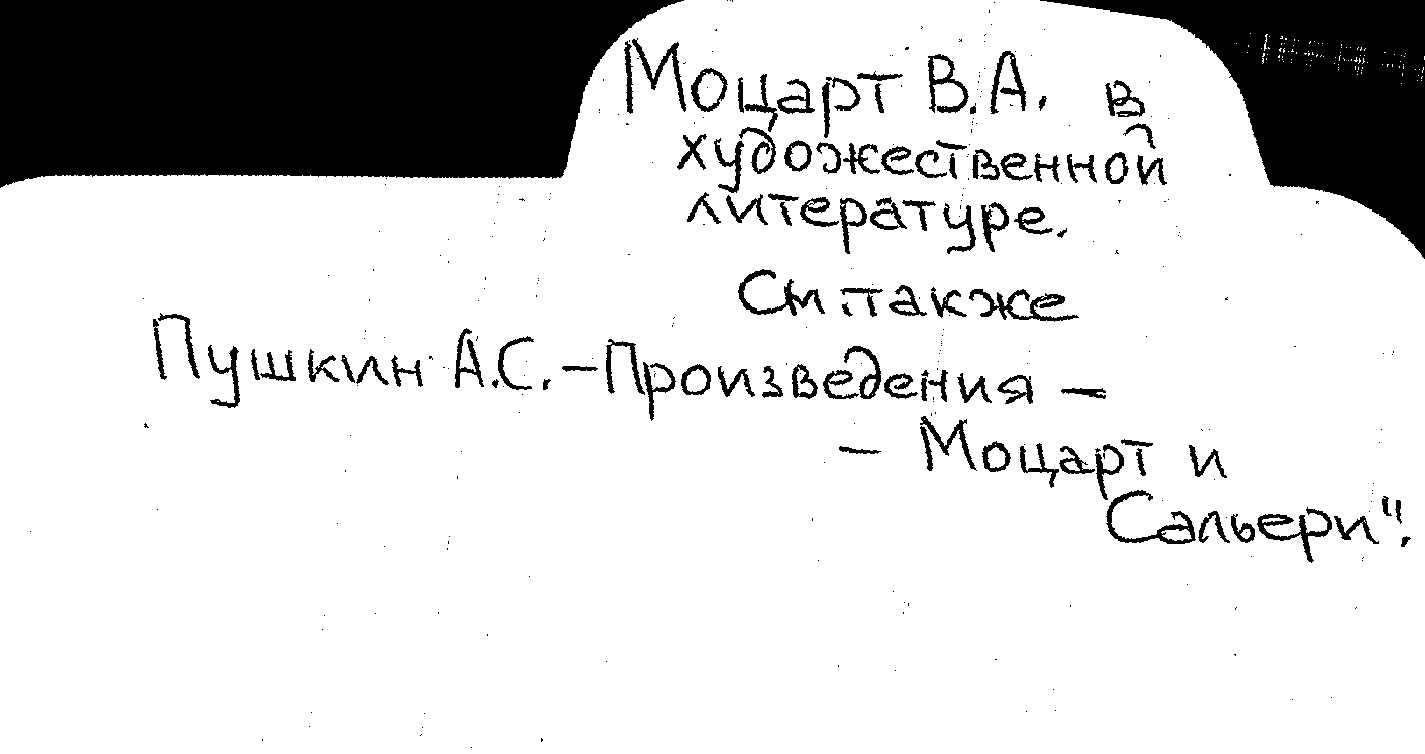 Моцарт В.А. в
художественной
литературе.
См. также
Пушкин А.С. – Произведения –
– Моцарт и
Сальери".